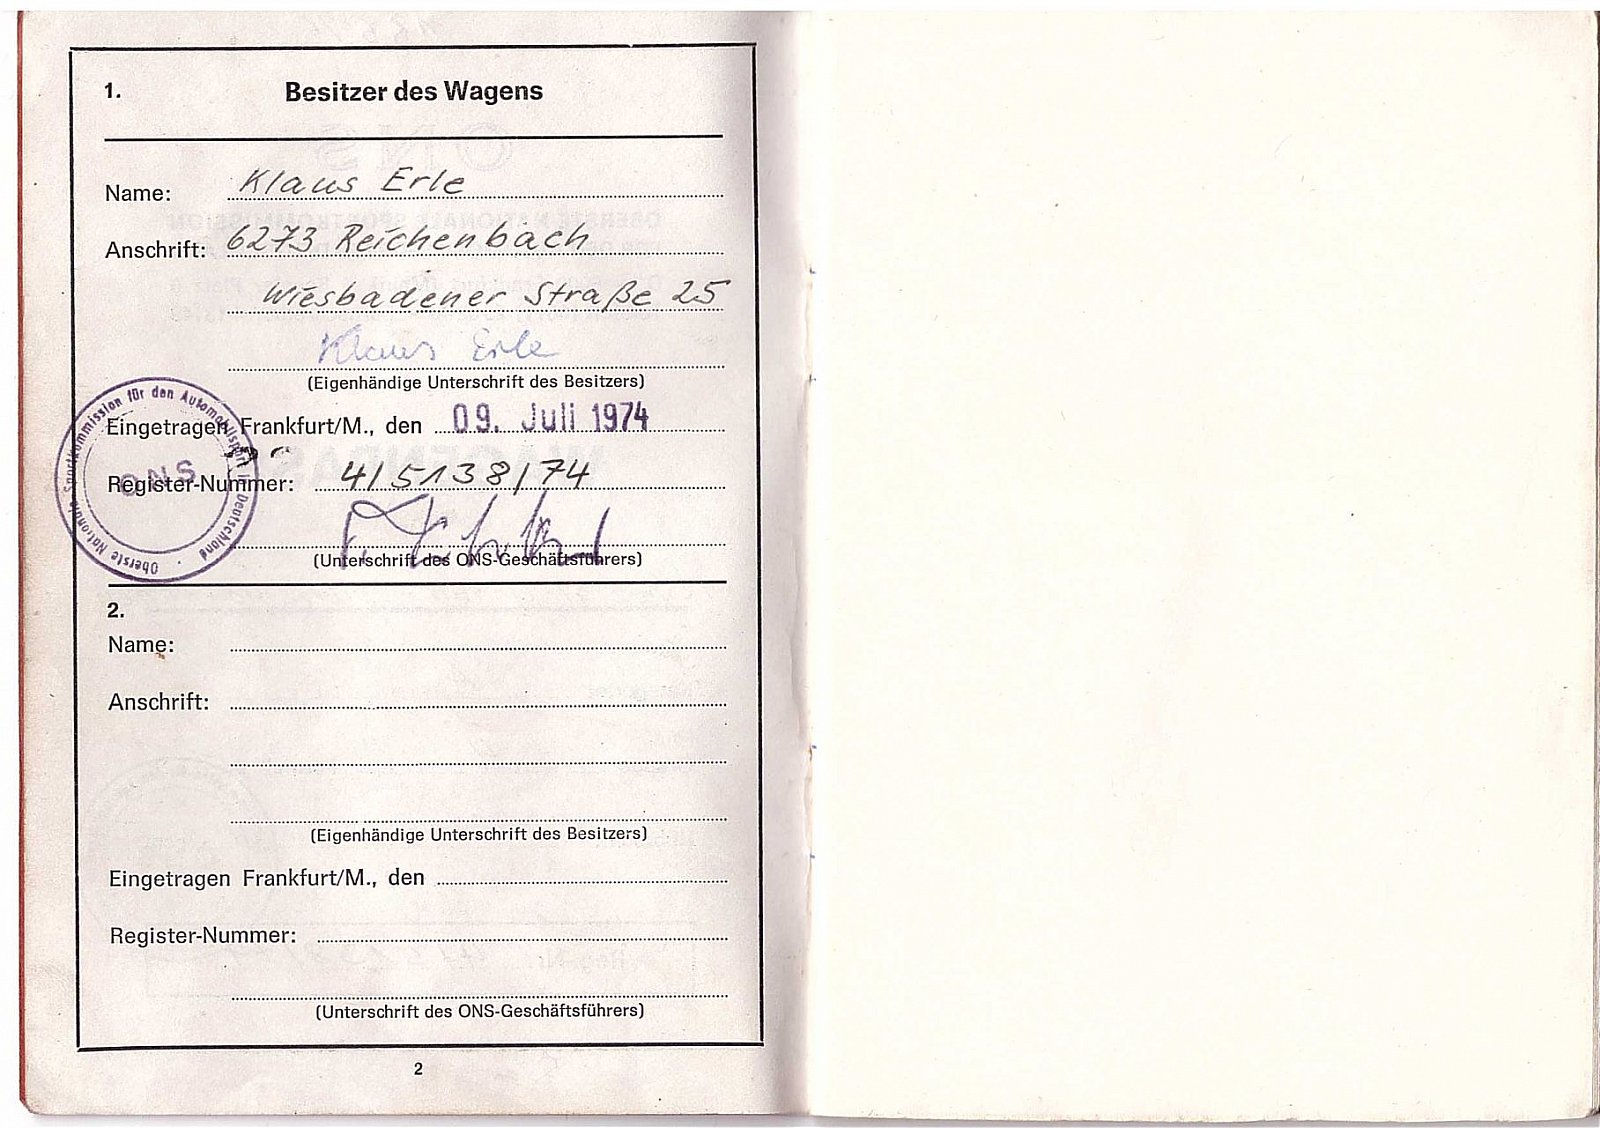 1. Besitzer des Wagens
Name: Klaus Erle
Anschrift: 6273 Reichenbach
Wiesbadener Straße 25
Klaus Erle
(Eigenhändige Unterschrift des Besitzers)
Eingetragen Frankfurt/M., den 09. Juli 1974
Register-Nummer: 4/5138/74
(Unterschrift des ONS-Geschäftsführers)
Oberste Nationale Sportkommission für den Automobilsport in Deutschland
ONS
2.
Name:
Anschrift:
(Eigenhändige Unterschrift des Besitzers)
Eingetragen Frankfurt/M., den
Register-Nummer:
(Unterschrift des ONS-Geschäftsführers)
2